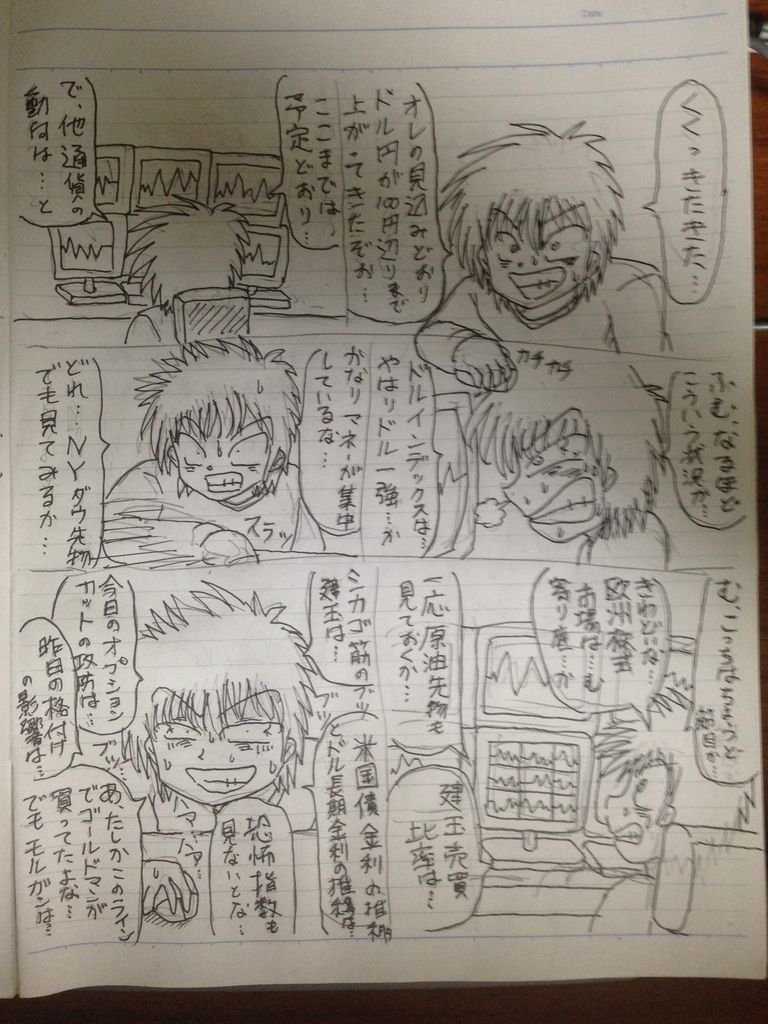 Date
くくっ きたきた…
オレの見込みどおり
ドル円が100円辺りまで
上がってきたぞお…
ここまでは、
予定どおり…
で、他通貨の
動向は…と
カチ カチ
ふむ、なるほど
こういう状況か…
ドルインデックスは…
やはりドル一強…か
かなりマネーが集中
しているな…
スラッ
どれ…NYダウ先物
でも見てみるか…
む、こっちはちょうど
節目か…
きわどいな…
欧州株式
市場は…む
寄り底…か
一応原油先物も
見ておくか…
建玉売買
比率は…
シカゴ筋の
建玉は…
ブッ
ブツ
米国債金利の推移
とドル長期金利の推移は…
恐怖指数も
見ないとな…
今日のオプション
カットの攻防は…
昨日の格付け
の影響は…
ブツ…
ハァ…ハァ…
あ、たしかこのライン
でゴールドマンが
買ってたよな…
でもモルガンは…